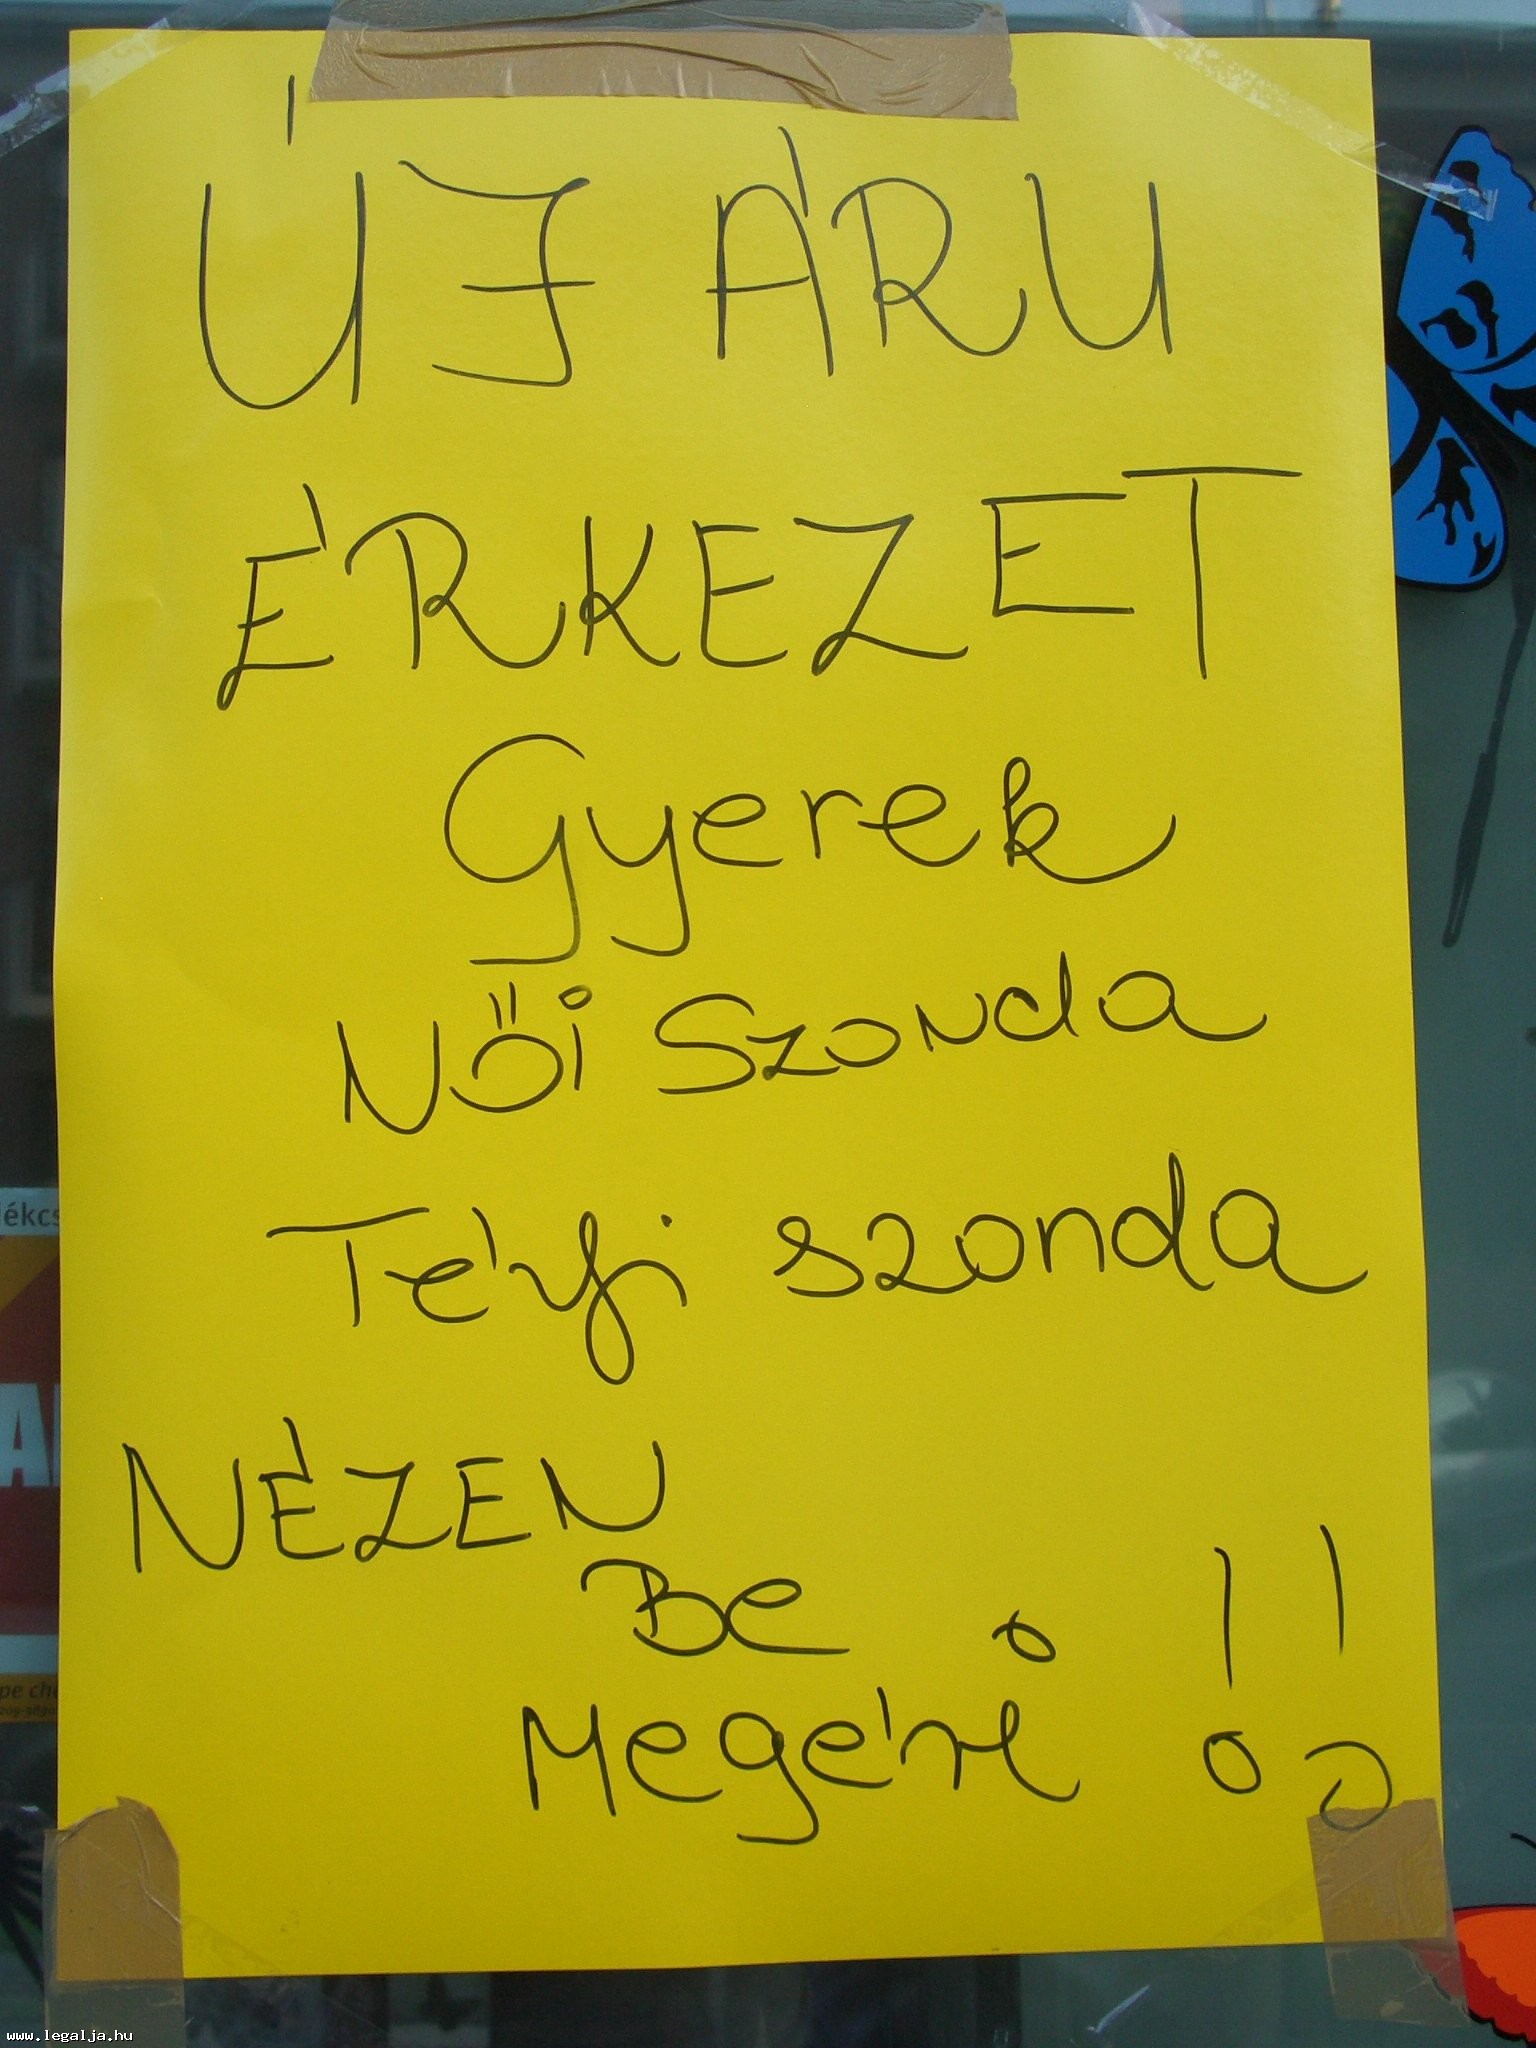 ÚJ ÁRU
ÉRKEZET
Gyerek
NŐi Szonda
Térfi szonda
NÉZEN
Be
Megéri !!
lékcs
pe che
www.legalja.hu